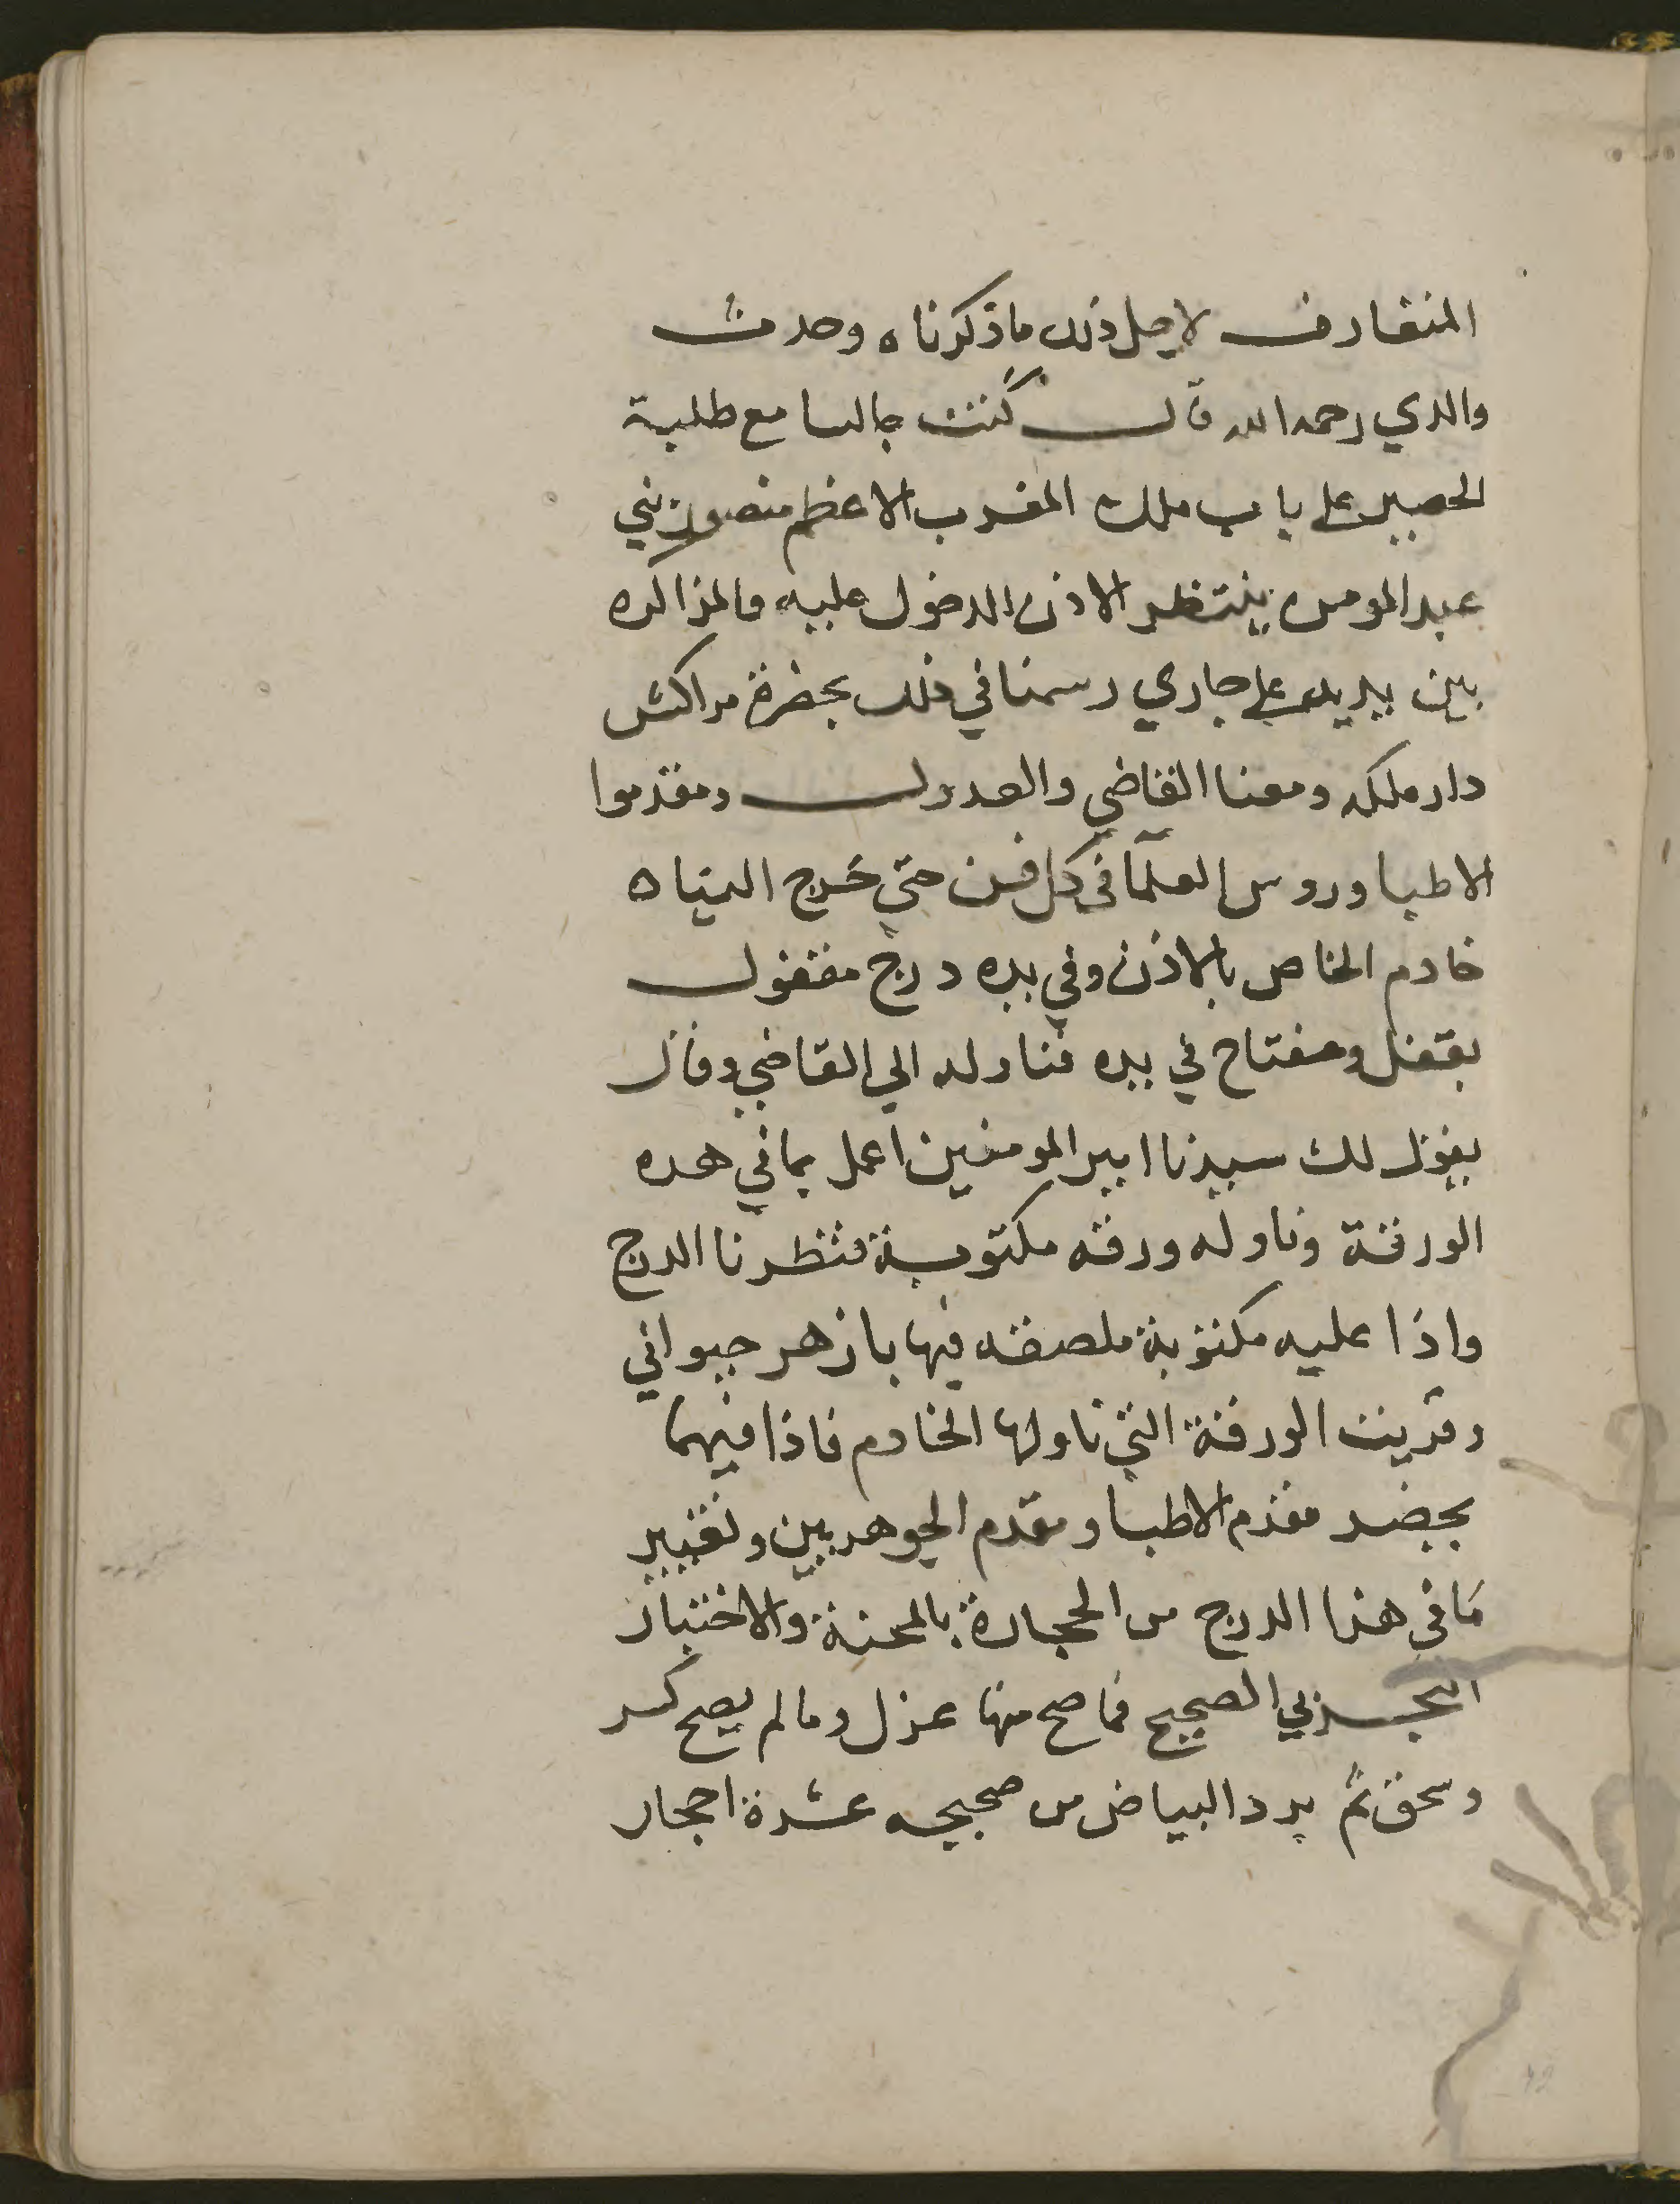 المتعارف لاجل ذلك ماذكرناه وحدث
والدي رحمه الله قال كنت جالسا مع طلبة
الحصير على باب ملك المغرب الاعظم منصور بني
عبد المومن ينتظر الاذن الدخول عليه والمذاكره
بين يديه على جاري رسمنا في ذلك بحضرة مراكش
دار ملكه ومعنا القاضي والعدول ومقدموا
الاطبا وروس العلمآ في كل فن حتى خرج الينا ه
خادم الخاص بالاذن وفي يده درج مقفول
بقفل ومفتاح في يده فناوله الي القاضي وقال
يقول لك سيدنا امير المومنين اعمل بما في هده
الورقة وناوله ورقه مكتوبة فنظرنا الدرج
واذا عليه مكتوبة ملصقه فيها بازهر حيواني
وقريت الورقة التي ناولها الخادم فاذا فيهما
يحضر مقدم الاطبا ومقدم الجوهريين وتغيير
ما في هذا الدرج من الحجارة بالمحنة والاختبار
التجربي الصحيح فماصح منها عزل ومالم يصح كسر
وسحق ثم يرد البياض من صحيحه عشرة احجار